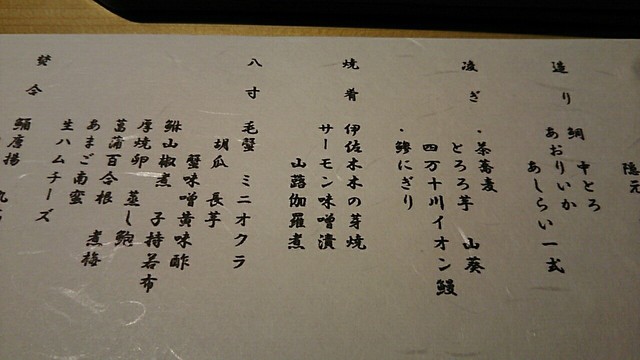 隠元
造り
鯛 中とろ
あおりいか
あしらい一式
凌ぎ
・茶蕎麦
とろろ芋 山葵
四万十川イオン鰻
・鯵にぎり
焼肴
伊佐木木の芽焼
サーモン味噌漬
山蕗伽羅煮
八寸
毛蟹 ミニオクラ
胡瓜 長芋
蟹味噌黄味酢
鮴山椒煮 子持若布
厚焼卵 蒸し鮑
菖蒲百合根
あまご南蛮 煮梅
生ハムチーズ
焚合
唐揚